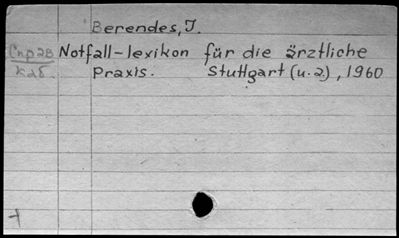 Berendes, J.
Notfall-lexikon für die ärztliche
Praxis. Stuttgart (u.a), 1960